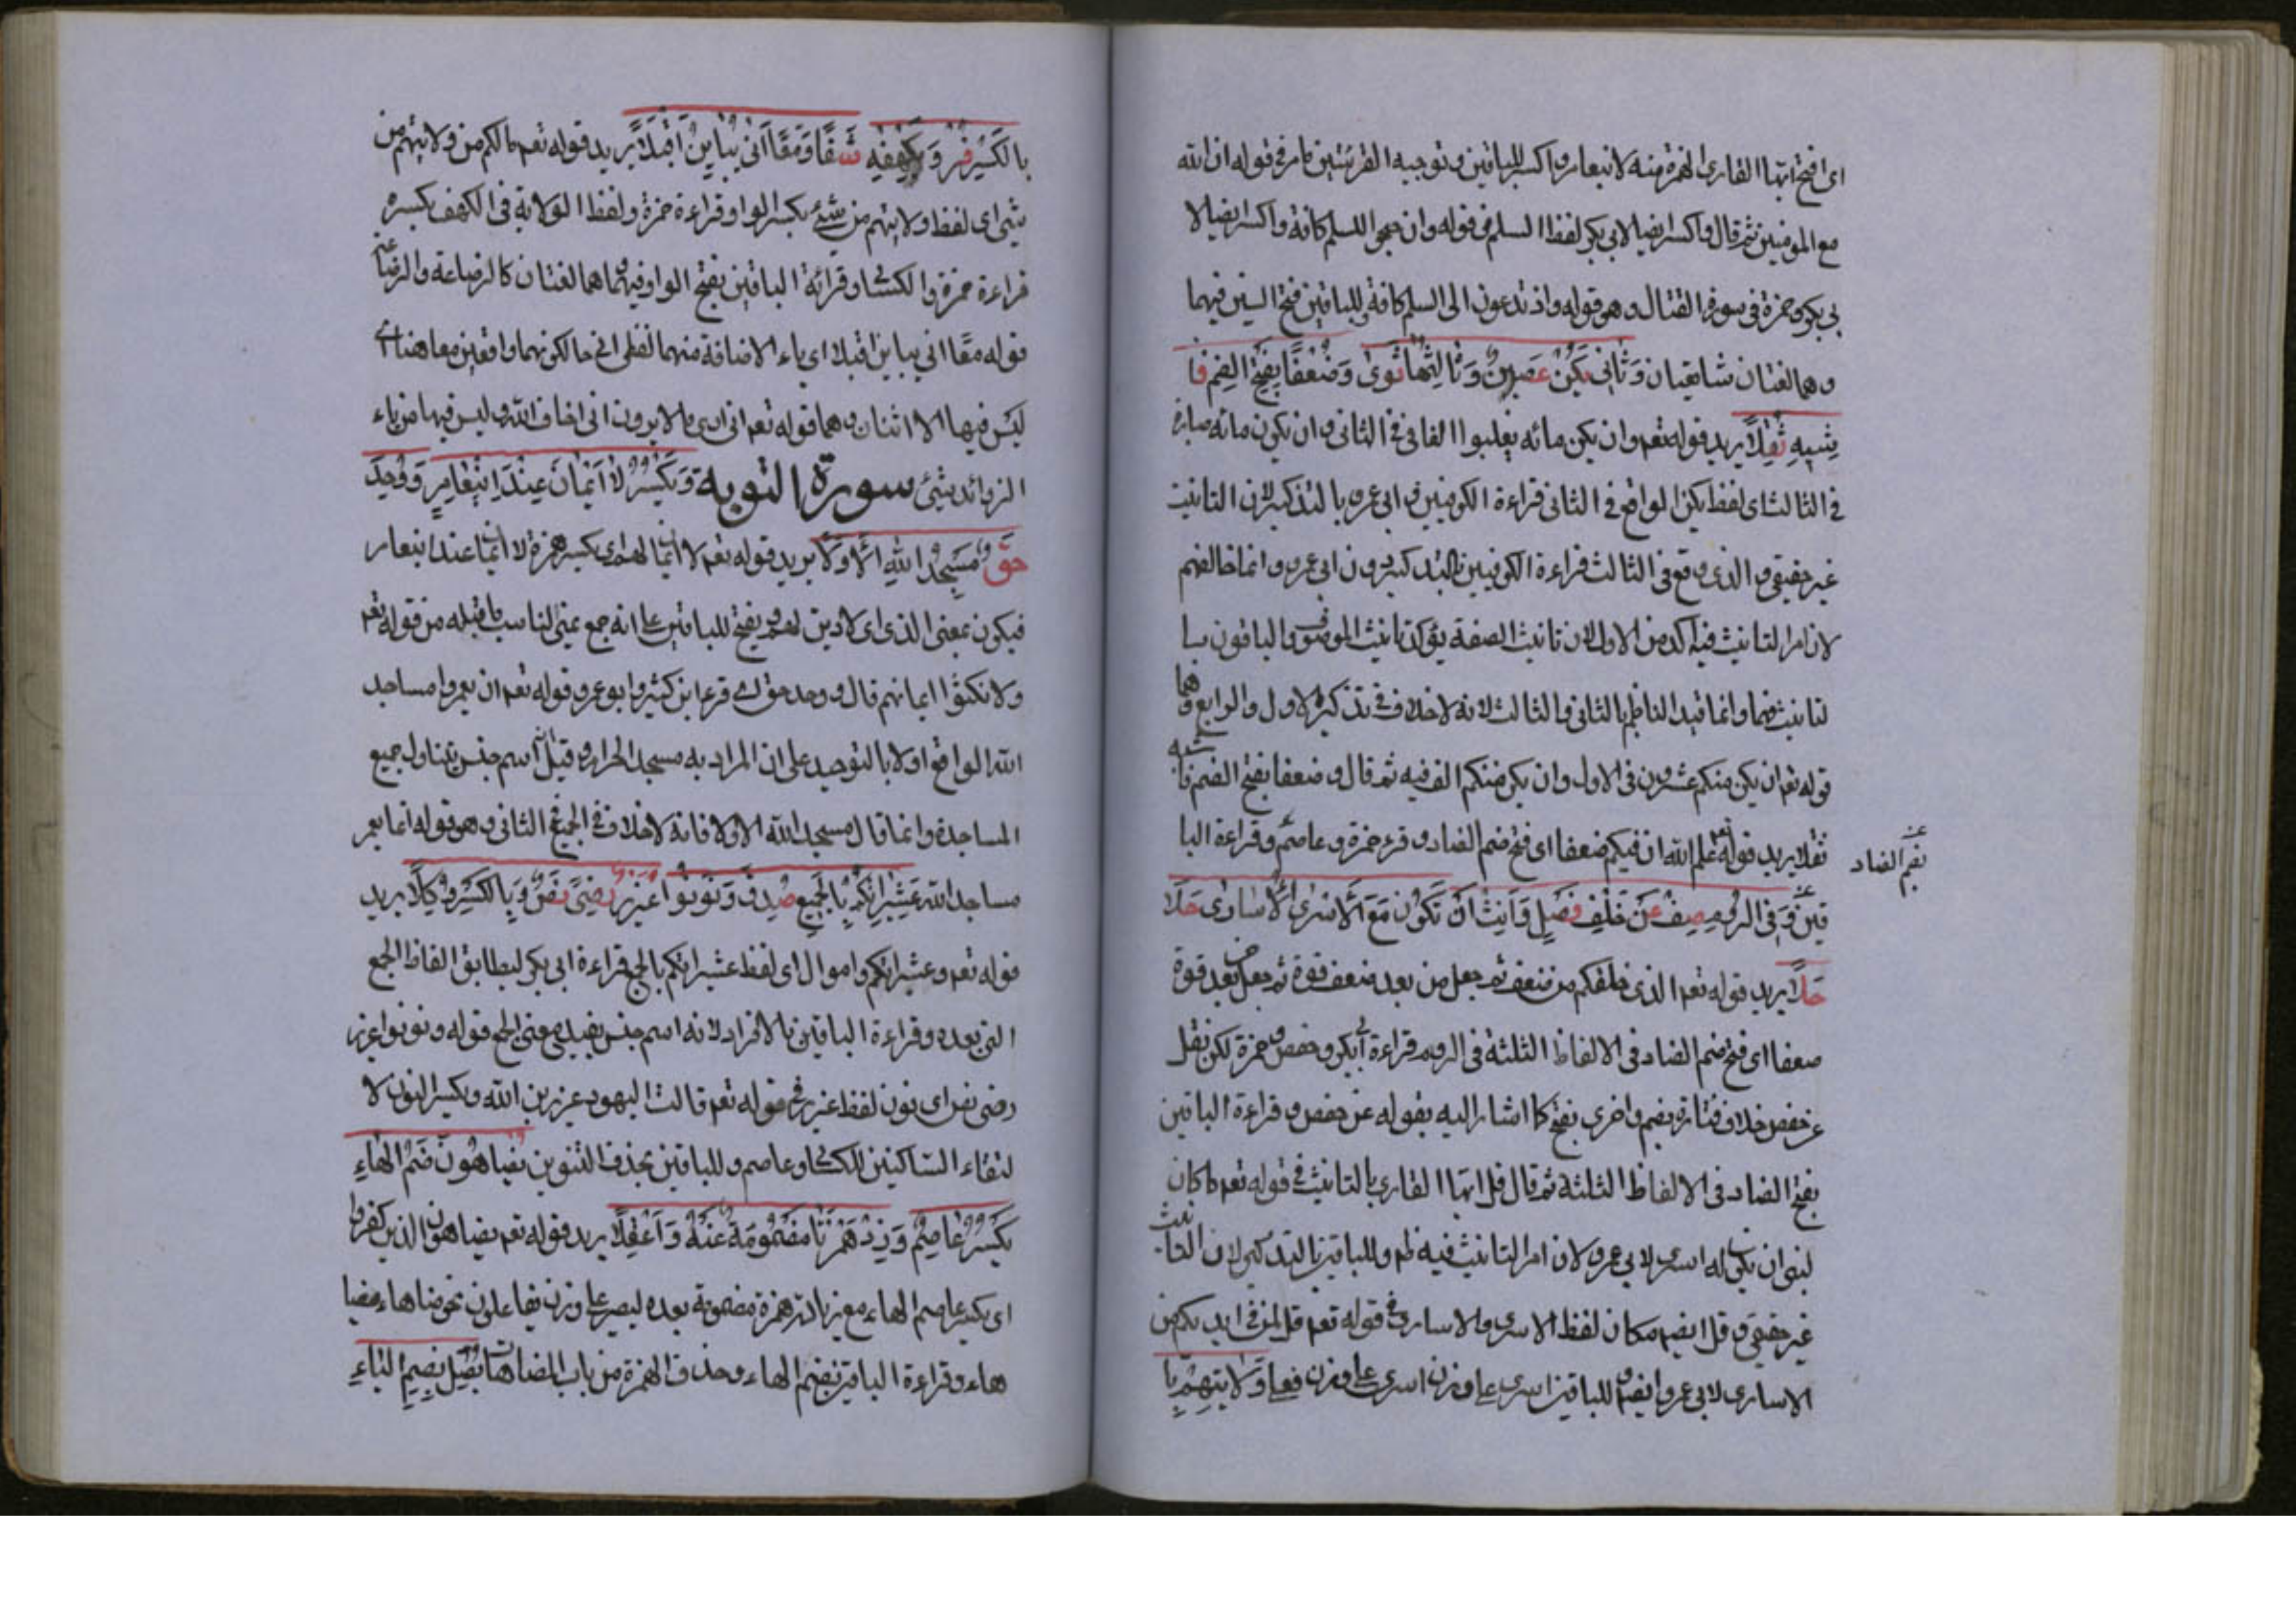 اى افتح ايها القارى الهمزة منه لا نبعام واكسر للباقين وتوجيه القرئتين مامر فى قوله ان الله
مع المومنين ثم قال واكسر ايضا لابى بكر لفظ السلم فى قوله وان جنحوا للسلم كافة واكسر ايضا لا
بى بكر وحمزة فى سورة القتال وهو قوله واذ تدعون الى السلم كافة وللباقين فتح السين فيهما
وهما لغتان شايعتان وَثَانِى يَكُنْ غُصْنٌ وَثَالِثُهَا ثَوَى وَضُعْفًا بِفَتْحِ الضَّمِ فَا
شِيهِ نُفِلَا يريد قوله تعم وان يكن مائه يغلبوا الفا فى الثانى وان يكون مائه صابرة
فى الثالث اى لفظ يكن الواقع فى الثانى قراءة الكوفيين وابى عمرو بالتذكير لان التانيث
غير حقيقى والذى وقع فى الثالث قراءة الكوفيين بالتذكير دون ابى عمرو وانما خالفهم
لان امر التانيث فيه اكد من الاول لان تانيث الصفة يؤكد تانيث الموصوف والباقون با
لتانيث فيهما وانما قيد الناظم بالثانى والثالث لانه لا خلاف فى تذكير الاول والرابع وهما
قوله تعم ان يكن منكم عشرون فى الاول وان يكن منكم الف فيه ثم قال وضعفا بفتح الضم فاشيه
نفلا يريد قوله تعم علم الله ان فيكم ضعفا اى فتح ضم الضاد وقرء حمزة وعاصم وقراءة البا
بضم الضاد
قين وَفِى الرُّومِ صِفْ عَنْ خُلْفِ فَصْلٍ وَأَنِّثْ أَنْ تَكُونَ مَعَ الْأَسْرَى الْأُسَارَى حُلًا
حَلَا يريد قوله تعم الذى خلقكم من ضعف ثم جعل من بعد ضعف قوة ثم جعل من بعد قوة
ضعفا اى فتح ضم الضاد فى الالفاظ الثلثة فى الروم قراءة ابى بكر وحفص وحمزة لكن نقل
عن حفص خلاف فتارة بضم واخرى بفتح كما اشار اليه بقوله عن حفص وقراءة الباقين
بفتح الضاد فى الالفاظ الثلثة ثم قال قل ايها القارى بالتانيث فى قوله تعم ما كان
لنبى ان يكون له اسرى لابى عمرو لان امر التانيث فيه ظم وللباقين بالتذكير لان التانيث
غير حقيقى وقل ايضا مكان لفظ الاسرى والاسارى فى قوله تعم قل لمن فى ايديكم من
الاسارى لابى عمرو ايضا وللباقين اسرى على وزن اسرى على وزن فعلى وَلَايَتِهِمْ
بِالْكَسْرِ فُزْ وَبِكَهْفِهِ شَفَا وَمَعًا إِنِّى بِيَاءَيْنِ أَقْبَلَا يريد قوله تعم مالكم من ولايتهم من
شئ اى لفظ ولايتهم من شئ بكسر الواو قراءة حمزة ولفظ الولاية فى الكهف بكسره
قراءة حمزة والكسائى وقرائة الباقين بفتح الواو فيهما وهما لغتان كالرضاعة والرضاعة
قوله معا انى بياءين اقبلا اى ياء الاضافة منهما لفظى انى حالكونهما واقعين معا هنا اى
ليس فيها الا اثنان وهما قوله تعم انى ارى ما لا يرون انى اخاف الله وليس فيها من ياء
الزوائد شئ سورة التوبة وَيُكْسَرُ لَا أَيْمَانَ عِنْدَ ابْنِ عَامِرٍ وَوَحَّدَ
حَقٌّ مَسْجِدَ اللّٰهِ الْأَوَّلَا يريد قوله تعم لا ايمان لهم اى بكسر همزة لا ايمان عند ابنعامر
فيكون بمعنى الذى اى لا دين لهم وبفتح للباقين على انه جمع يمين لناسب ما قبله من قوله تعم
ولا نكثوا ايمانهم قال ووحد حق اى قرء ابن كثير وابو عمرو قوله تعم ان يعمروا مساجد
الله الواقع اولا بالتوحيد على ان المراد به مسجد الحرام وقيل اسم جنس يتناول جميع
المساجدة وانما قال مسجد الله الاولا فانه لا خلاف فى الجمع فى الثانى وهو قوله انما يعمر
مساجد الله عَشِيرَاتُكُمْ بِالْجَمْعِ صِدْقٌ وَنَوِّنُوا عُزَيْرٌ رِضَى نَصٍّ وَبِالْكَسْرِ وُكِّلَا يريد
قوله تعم وعشيراتكم واموال اى لفظ عشيراتكم بالجمع قراءة ابى بكر ليطابق الفاظ الجمع
التى بعده وقراءة الباقين بالافراد لانه اسم جنس يفيد معنى الجمع قوله ونونوا عزير
رضى نص اى نون لفظ عزير فى قوله تعم قالت اليهود عزير بن الله وبكسر النون لا
لتقاء الساكنين للكسائى وعاصم وللباقين بحذف التنوين يُضَاهُونَ ضَمَّ الْهَاءِ
يَكْسِرُ عَاصِمٌ وَزِدْ هَمْزَةً مَضْمُومَةً عَنْهُ وَاعْقِلَا يريد قوله تعم يضاهون الذين كفروا
اى بكسر عاصم الهاء مع زيادة همزة مضمومة بعده ليصير على وزن يفاعلون نحو ضاهاء يضا
هاء وقراءة الباقين بضم الهاء وحذف الهمزة من باب المضاهات يُضَلُّ بِضَمِّ الْيَاءِ